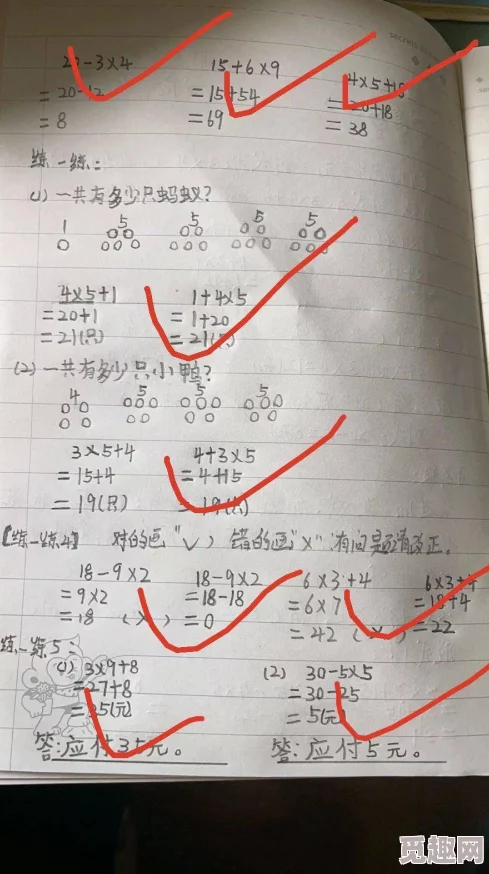 20-3×4 15+6×9 4×5+18
=20-12 =15+54 =20+18
=8 =69 =38
练一练:
(1) 一共有多少只蚂蚁?
1 5 5 5 5
4×5+1 1+4×5
=20+1 =1+20
=21(只) =21(只)
(2) 一共有多少只小鸭?
4 5 5 5
3×5+4 4+3×5
=15+4 =4+15
=19(只) =19(只)
[练一练4] 对的画"√",错的画"×",有问题请改正。
18-9×2 18-9×2 6×3+4 6×3+4
=9×2 =18-18 =6×7 =18+4
=18 (×) =0 =42 (×) =22
练一练5:
(1) 3×9+8 (2) 30-5×5
=27+8 =30-25
=35(元) =5(元)
答:应付35元。 答:应付5元。
觅趣网